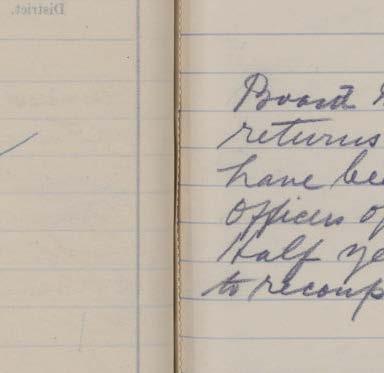 District.
Board
returns
have bee
officers of
half ye
to recoup